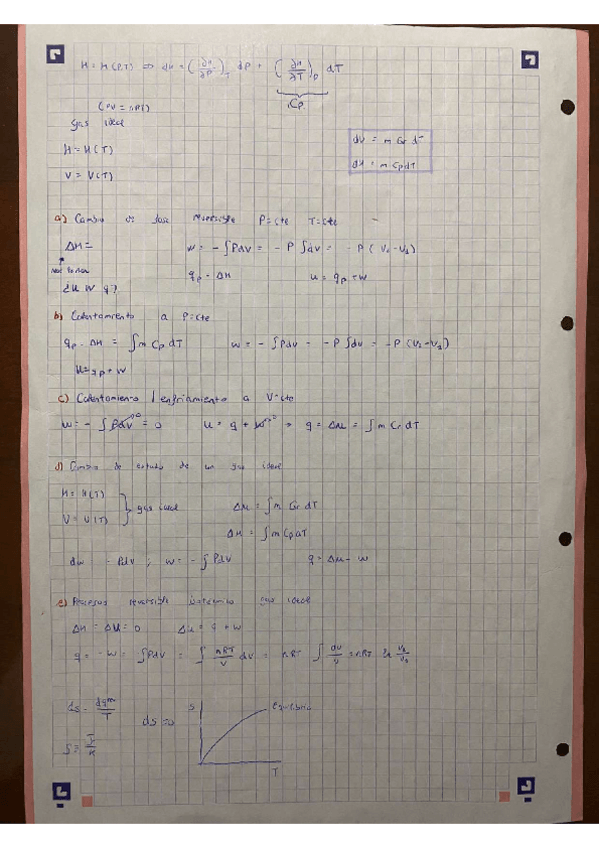 H = H(P,T) ⇒ dH = (∂H/∂P)_T dP + (∂H/∂T)_P dT
Cp
(PV = nRT)
gas ideal
H = H(T)
V = V(T)
dU = m Cv dT
dH = m Cp dT
a) Cambio de fase reversible P=cte T=cte
ΔH =
w = - ∫PdV = - P ∫dV = - P (V2 - V1)
qp = ΔH u = qp + w
¿u w q?
b) Calentamiento a P=cte
qp = ΔH = ∫m Cp dT w = - ∫PdV = - P ∫dV = - P (V2 - V1)
u = qp + w
c) Calentamiento / enfriamiento a V=cte
w = - ∫PdV = 0 u = q + w → q = Δu = ∫m Cv dT
d) Cambio de estado de un gas ideal
H = H(T)
V = V(T)
gas ideal
Δu = ∫m Cv dT
ΔH = ∫m Cp dT
dw = - PdV ; w = - ∫PdV q = Δu - w
e) Procesos reversible isotermico gas ideal
ΔH = ΔU = 0 Δu = q + w
q = -w = ∫PdV = ∫ nRT/V dV = nRT ∫ dV/V = nRT ln V2/V1
ds = dq/T
ds =0
S
Equilibrio
T